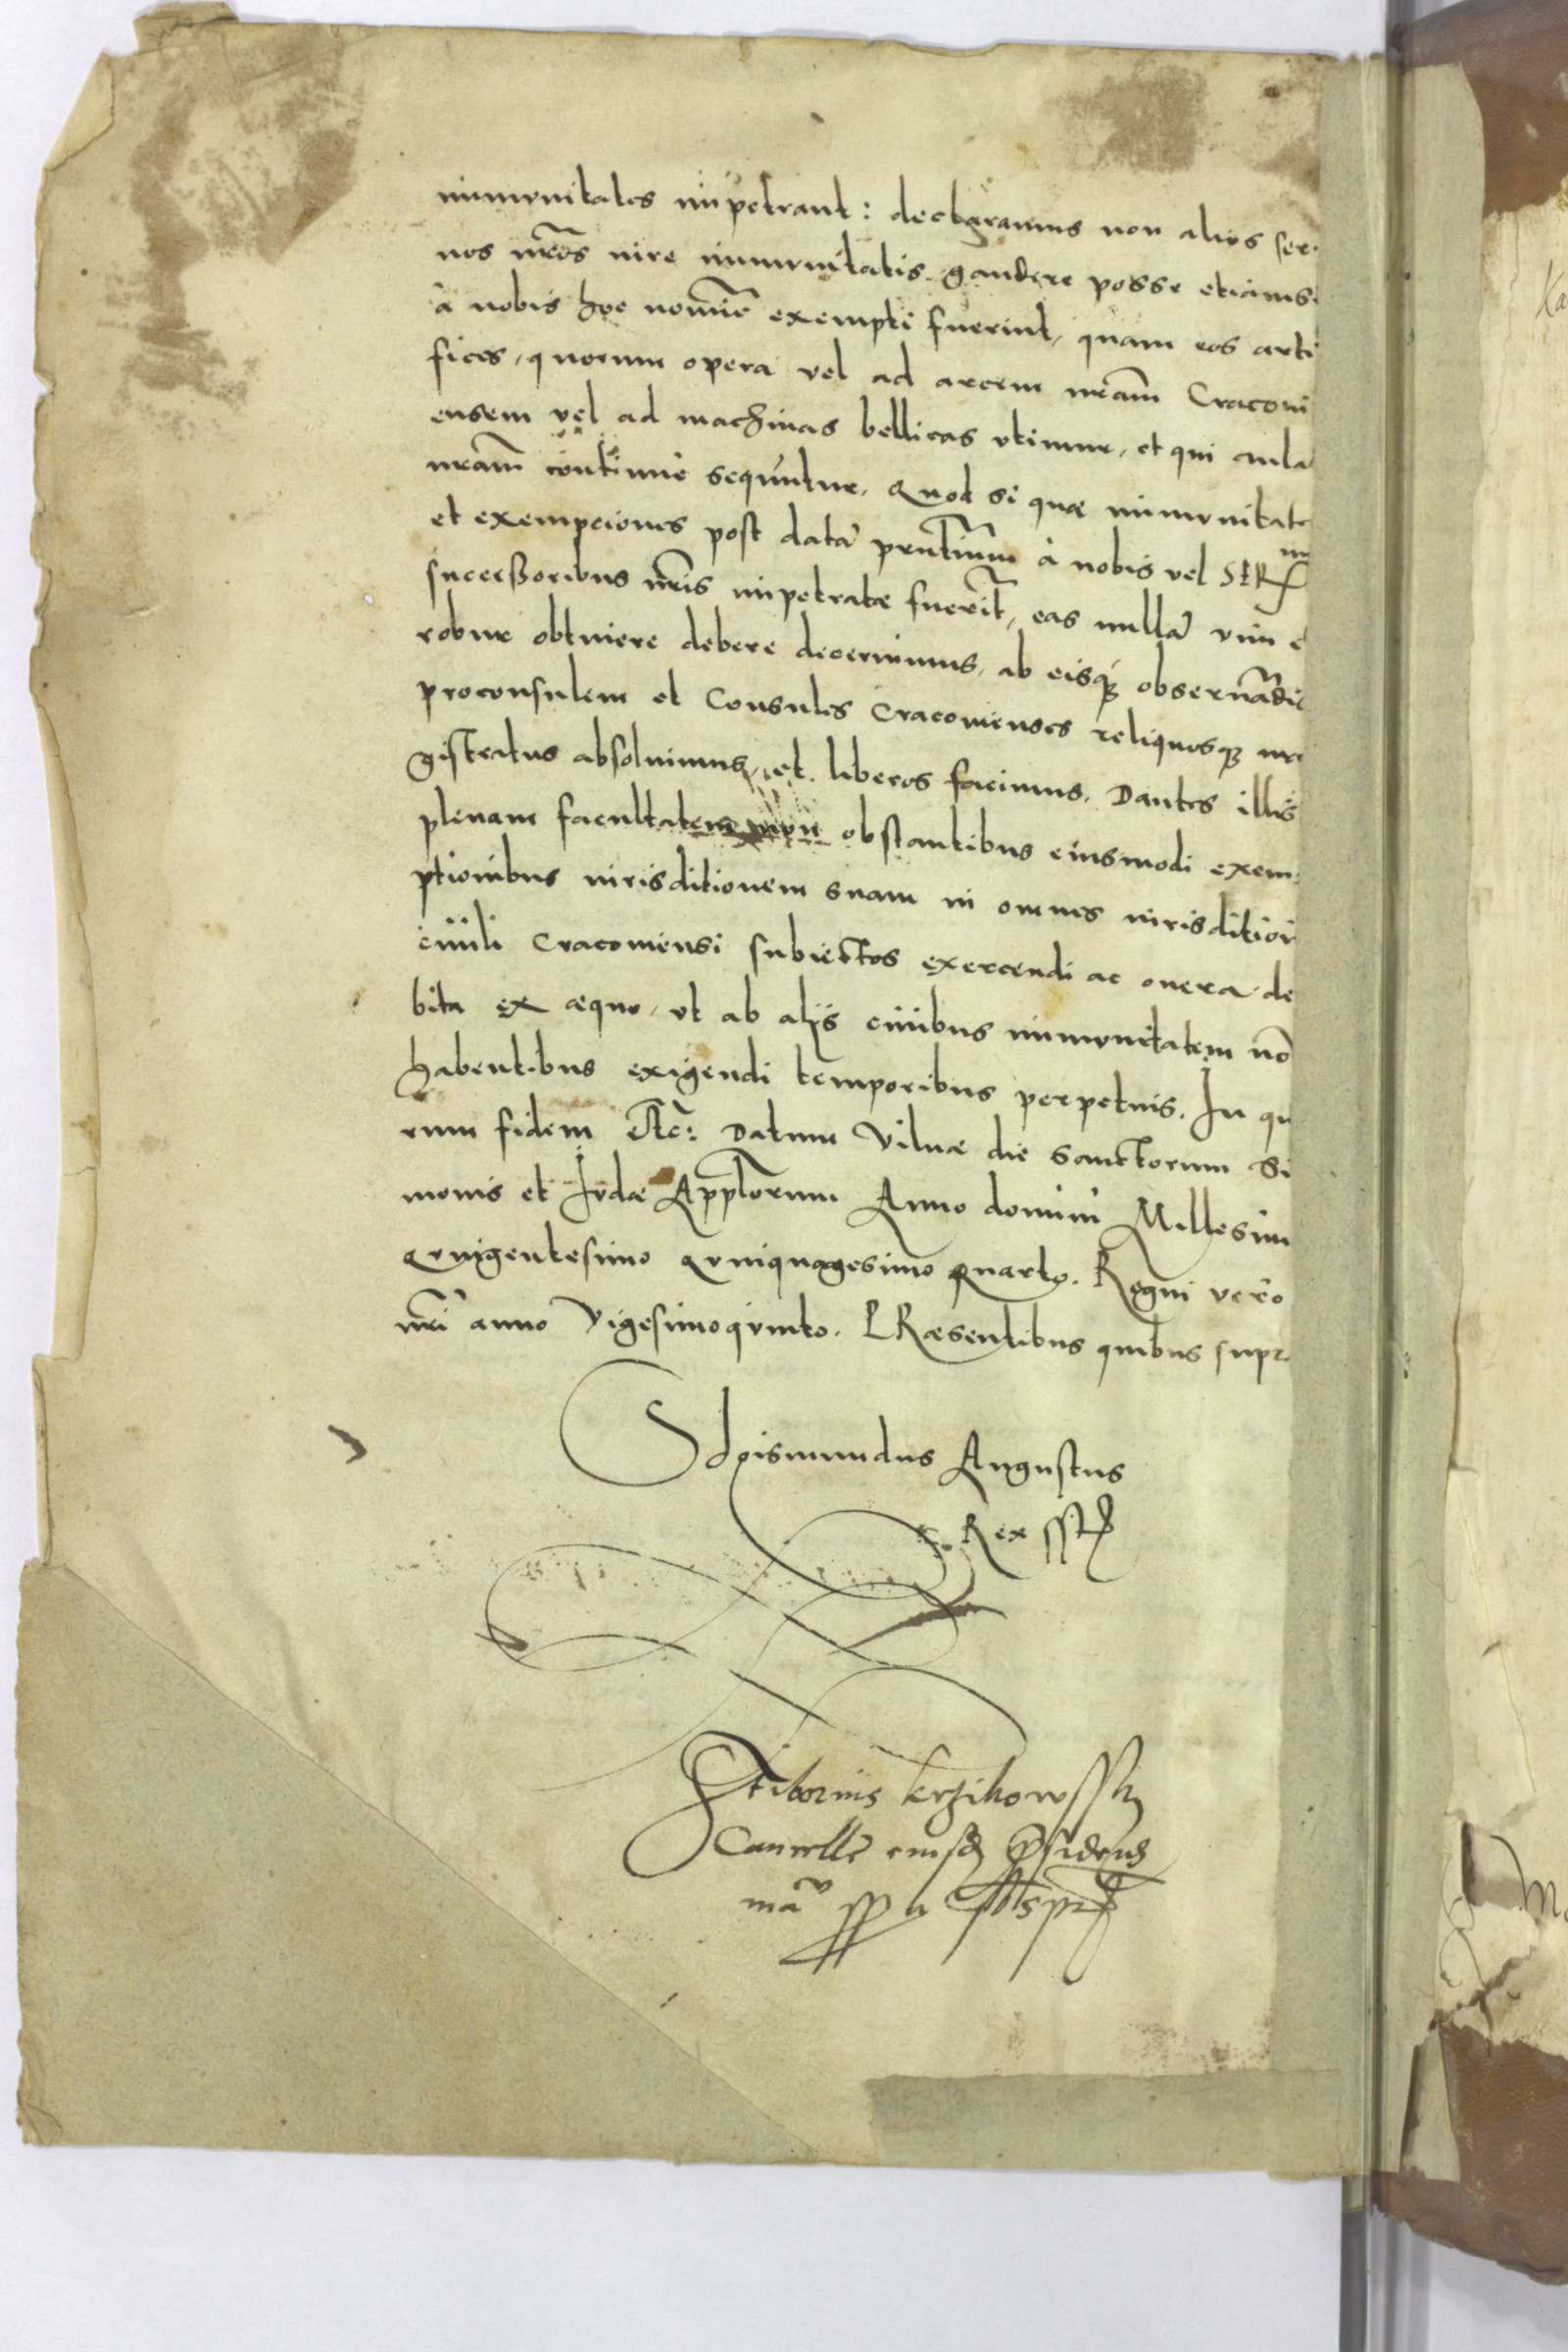 immunitates impetrant: declaramus non alios ser
uos nr̃os iure immunitatis gaudere posse etiamsi
à nobis hoc nomiẽ exempti fuerint, quam eos arti
fices, quorum opera vel ad arcem nr̃am Cracoui
ensem vel ad machinas bellicas vtimur, et qui aula
nr̃am continuè sequuntur. Quod si quæ immunitat
et exempciones post datã pñtium à nobis vel
successoribus nr̃is impetratæ fuerĩt, eas nullã vim e
robur obtinere debere decernimus, ab eisq; obseruãdi
proconsulem et Consules Cracouienses reliquosq; ma
gistratus absoluimus, et liberos facimus. Dantes illis
plenam facultatem non obstantibus eiusmodi exem
ptionibus iurisditionem suam in omnes iurisdition
ciuili Cracouiensi subiectos exercendi ac onera de
bita ex æquo, vt ab alijs ciuibus immunitatem nõ
habentibus exigendi temporibus perpetuis. In quo
rum fidem etc̃: Datum Vilnæ die Sanctorum Si
monis et Iudæ Appl̃orum Anno domini Millesim
Quingentesimo Quinquagesimo Quarto. Regni vero
nr̃i anno Vigesimoquinto. PRæsentibus quibus supr
Sdgismundus Augustus
Rex sst
Stiborius krzikowssky
Cancellr̃ eiusd p̃sidens